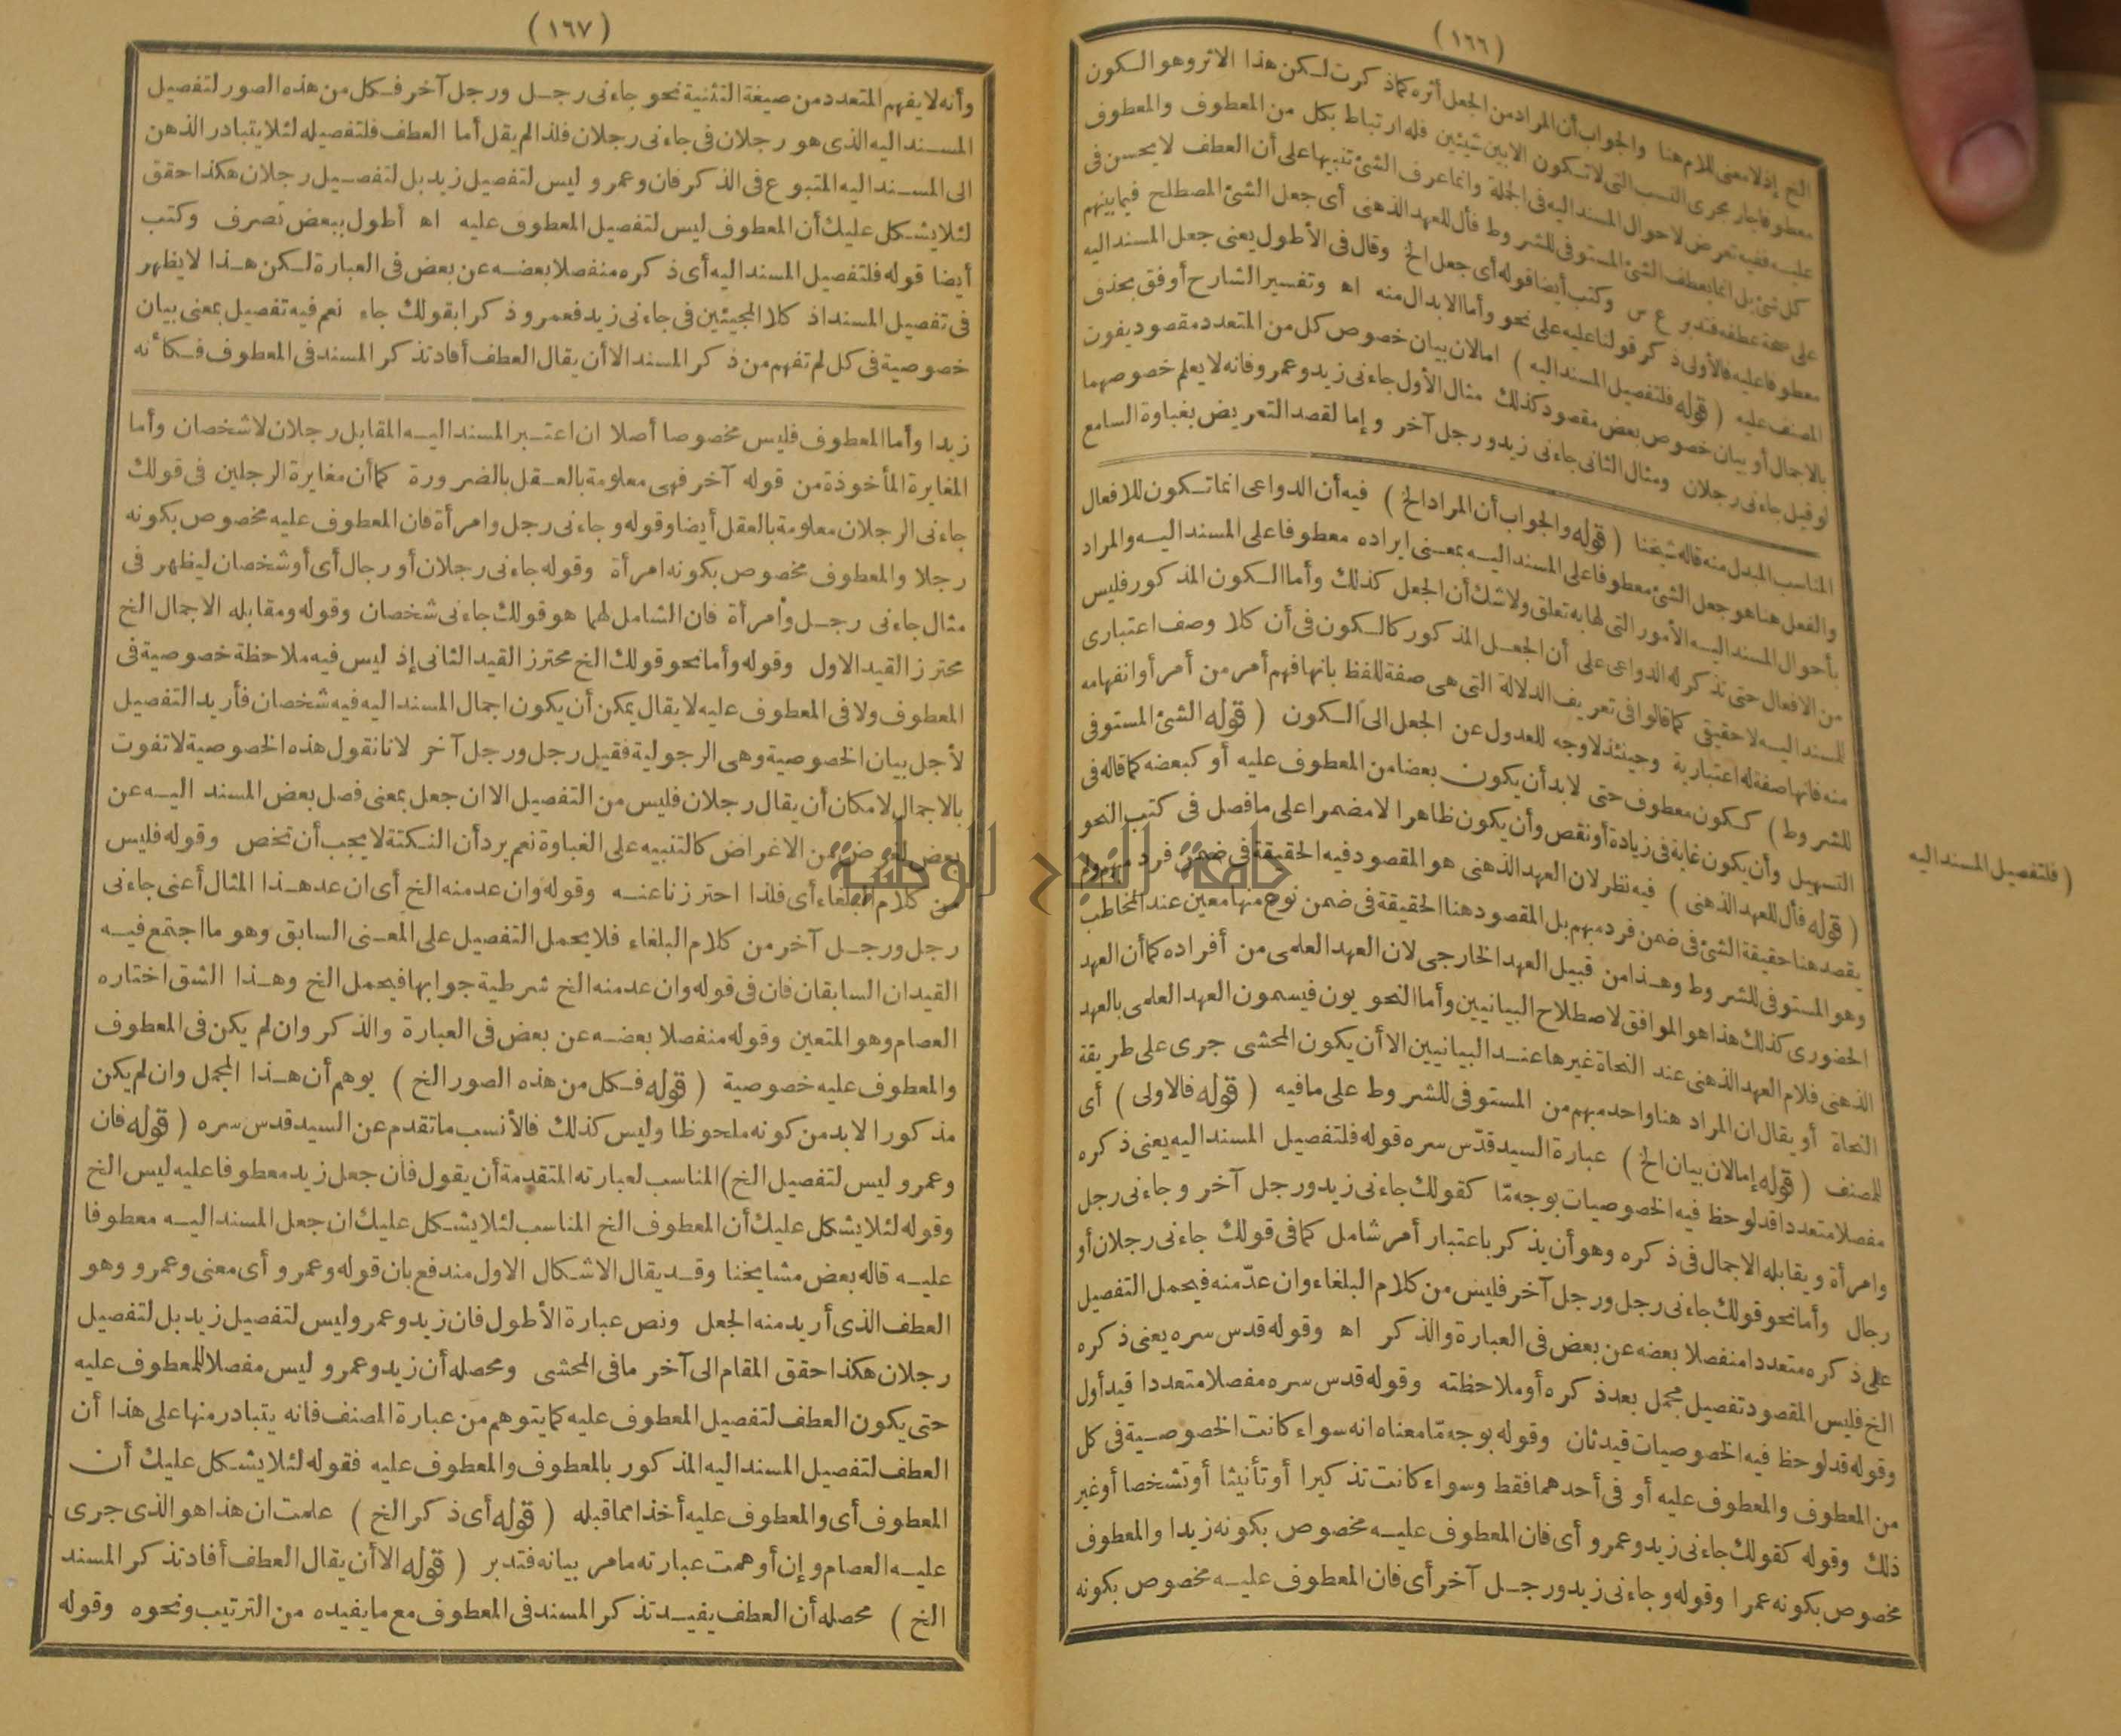 (١٦٦)
الخ إذ لا معنى للام هنا والجواب أن المراد من الجعل أثره كما ذكرت لكن هذا الاثر وهو الكون
معطوفا جار مجرى النسب التى لا تكون الا بين شيئين فله ارتباط بكل من المعطوف والمعطوف
عليه ففيه تعرض لاحوال المسند اليه فى الجملة وانما عرف الشئ تنبيها على أن العطف لا يحسن فى
كل شئ بل انما يعطف الشئ المستوفى للشروط فأل للعهد الذهنى أى جعل الشئ المصطلح فيما بينهم
على صحة عطفه فتدبر ع س وكتب أيضا قوله أى جعل الخ وقال فى الأطول يعنى جعل المسند اليه
معطوفا عليه فالأولى ذكر قولنا عليه على نحو وأما الابدال منه اه وتفسير الشارح أوفق بحذف
المصنف عليه (قوله فلتفصيل المسند اليه) امالان بيان خصوص كل من المتعدد مقصود يفوت
بالاجمال أو بيان خصوص بعض مقصود كذلك مثال الأول جاءنى زيد وعمرو فانه لا يعلم خصوصهما
لو قيل جاءنى رجلان ومثال الثانى جاءنى زيد ورجل آخر وإما لقصد التعريض بغباوة السامع
المناسب المبدل منه قاله شيخنا (قوله والجواب أن المراد الخ) فيه أن الدواعى انما تكون للافعال
والفعل هنا هو جعل الشئ معطوفا على المسند اليه بمعنى ايراده معطوفا على المسند اليه والمراد
بأحوال المسند اليه الأمور التى لها به تعلق ولا شك أن الجعل كذلك وأما الكون المذكور فليس
من الافعال حتى تذكر له الدواعى على أن الجعل المذكور كالكون فى أن كلا وصف اعتبارى
للمسند اليه لا حقيقى كما قالوا فى تعريف الدلالة التى هى صفة للفظ بانها فهم أمر من أمر أو انفهامه
منه فانها صفة له اعتبارية وحينئذ لا وجه للعدول عن الجعل الى الكون (قوله الشئ المستوفى
للشروط) ككون معطوف حتى لابد أن يكون بعضا من المعطوف عليه أو كبعضه كما قاله فى
التسهيل وأن يكون غاية فى زيادة أو نقص وأن يكون ظاهرا لا مضمرا على ما فصل فى كتب النحو
(قوله فأل للعهد الذهنى) فيه نظر لان العهد الذهنى هو المقصود فيه الحقيقة فى ضمن فرد مبهم
يقصد هنا حقيقة الشئ فى ضمن فرد مبهم بل المقصود هنا الحقيقة فى ضمن نوع منها معين عند المخاطب
وهو المستوفى للشروط وهذا من قبيل العهد الخارجى لان العهد العلمى من أفراده كما أن العهد
الحضورى كذلك هذا هو الموافق لاصطلاح البيانيين وأما النحويون فيسمون العهد العلمى بالعهد
الذهنى فلام العهد الذهنى عند النحاة غيرها عند البيانيين الا أن يكون المحشى جرى على طريقة
النحاة أو يقال ان المراد هنا واحد مبهم من المستوفى للشروط على ما فيه (قوله فالاولى) أى
للمصنف (قوله إما لان بيان الخ) عبارة السيد قدّس سره قوله فلتفصيل المسند اليه يعنى ذكره
مفصلا متعددا قد لوحظ فيه الخصوصيات بوجه مّا كقولك جاءنى زيد ورجل آخر وجاءنى رجل
وامرأة ويقابله الاجمال فى ذكره وهو أن يذكر باعتبار أمر شامل كما فى قولك جاءنى رجلان أو
رجال وأما نحو قولك جاءنى رجل ورجل آخر فليس من كلام البلغاء وان عدّ منه فيحمل التفصيل
على ذكره متعددا منفصلا بعضه عن بعض فى العبارة والذكر اه وقوله قدس سره يعنى ذكره
الخ فليس المقصود تفصيل مجمل بعد ذكره أو ملاحظته وقوله قدس سره مفصلا متعددا قيد أول
وقوله قد لوحظ فيه الخصوصيات قيد ثان وقوله بوجه مّا معناه انه سواء كانت الخصوصية فى كل
من المعطوف والمعطوف عليه أو فى أحدهما فقط وسواء كانت تذكيرا أو تأنيثا أو تشخصا أو غير
ذلك وقوله كقولك جاءنى زيد وعمرو أى فان المعطوف عليه مخصوص بكونه زيدا والمعطوف
مخصوص بكونه عمرا وقوله وجاءنى زيد ورجل آخر أى فان المعطوف عليه مخصوص بكونه
(فلتفصيل المسند اليه
(١٦٧)
وأنه لا يفهم المتعدد من صيغة التثنية نحو جاءنى رجل ورجل آخر فكل من هذه الصور لتفصيل
المسند اليه الذى هو رجلان فى جاءنى رجلان فلذا لم يقل أما العطف فلتفصيله لئلا يتبادر الذهن
الى المسند اليه المتبوع فى الذكر فان وعمرو ليس لتفصيل زيد بل لتفصيل رجلان هكذا حقق
لئلا يشكل عليك أن المعطوف ليس لتفصيل المعطوف عليه اه أطول ببعض تصرف وكتب
أيضا قوله فلتفصيل المسند اليه أى ذكره منفصلا بعضه عن بعض فى العبارة لكن هذا لا يظهر
فى تفصيل المسند اذ كلا المجيئين فى جاءنى زيد فعمرو ذكرا بقولك جاء نعم فيه تفصيل بمعنى بيان
خصوصية فى كل لم تفهم من ذكر المسند الا أن يقال العطف أفاد تذكر المسند فى المعطوف فكأنه
زيدا وأما المعطوف فليس مخصوصا أصلا ان اعتبر المسند اليه المقابل رجلان لا شخصان وأما
المغايرة المأخوذة من قوله آخر فهى معلومة بالعقل بالضرورة كما أن مغايرة الرجلين فى قولك
جاءنى الرجلان معلومة بالعقل أيضا وقوله وجاءنى رجل وامرأة فان المعطوف عليه مخصوص بكونه
رجلا والمعطوف مخصوص بكونه امرأة وقوله جاءنى رجلان أو رجال أى أو شخصان ليظهر فى
مثال جاءنى رجل وامرأة فان الشامل لهما هو قولك جاءنى شخصان وقوله ومقابله الاجمال الخ
محترز القيد الاول وقوله وأما نحو قولك الخ محترز القيد الثانى إذ ليس فيه ملاحظة خصوصية فى
المعطوف ولا فى المعطوف عليه لا يقال يمكن أن يكون اجمال المسند اليه فيه شخصان فأريد التفصيل
لأجل بيان الخصوصية وهى الرجولية فقيل رجل ورجل آخر لانا نقول هذه الخصوصية لا تفوت
بالاجمال لامكان أن يقال رجلان فليس من التفصيل الا ان جعل بمعنى فصل بعض المسند اليه عن
بعض لغرض من الاغراض كالتنبيه على الغباوة نعم يرد أن النكتة لا يجب أن تخص وقوله فليس
من كلام البلغاء أى فلذا احترزنا عنه وقوله وان عد منه الخ أى ان عد هذا المثال أعنى جاءنى
رجل ورجل آخر من كلام البلغاء فلا يحمل التفصيل على المعنى السابق وهو ما اجتمع فيه
القيدان السابقان فان فى قوله وان عد منه الخ شرطية جوابها فيحمل الخ وهذا الشق اختاره
العصام وهو المتعين وقوله منفصلا بعضه عن بعض فى العبارة والذكر وان لم يكن فى المعطوف
والمعطوف عليه خصوصية (قوله فكل من هذه الصور الخ) يوهم أن هذا المجمل وان لم يكن
مذكورا لابد من كونه ملحوظا وليس كذلك فالأنسب ما تقدم عن السيد قدس سره (قوله فان
وعمرو ليس لتفصيل الخ) المناسب لعبارته المتقدمة أن يقول فان جعل زيد معطوفا عليه ليس الخ
وقوله لئلا يشكل عليك أن المعطوف الخ المناسب لئلا يشكل عليك ان جعل المسند اليه معطوفا
عليه قاله بعض مشايخنا وقد يقال الاشكال الاول مندفع بان قوله وعمرو أى معنى وعمرو وهو
العطف الذى أريد منه الجعل ونص عبارة الأطول فان زيد وعمرو ليس لتفصيل زيد بل لتفصيل
رجلان هكذا حقق المقام الى آخر ما فى المحشى ومحصله أن زيد وعمرو ليس مفصلا للمعطوف عليه
حتى يكون العطف لتفصيل المعطوف عليه كما يتوهم من عبارة المصنف فانه يتبادر منها على هذا أن
العطف لتفصيل المسند اليه المذكور بالمعطوف والمعطوف عليه فقوله لئلا يشكل عليك أن
المعطوف أى والمعطوف عليه أخذا مما قبله (قوله أى ذكر الخ) علمت ان هذا هو الذى جرى
عليه العصام وإن أوهمت عبارته ما مر بيانه فتدبر (قوله الا أن يقال العطف أفاد تذكر المسند
الخ) محصله أن العطف يفيد تذكر المسند فى المعطوف مع ما يفيده من الترتيب ونحوه وقوله
جامعة النجاح الوطنية